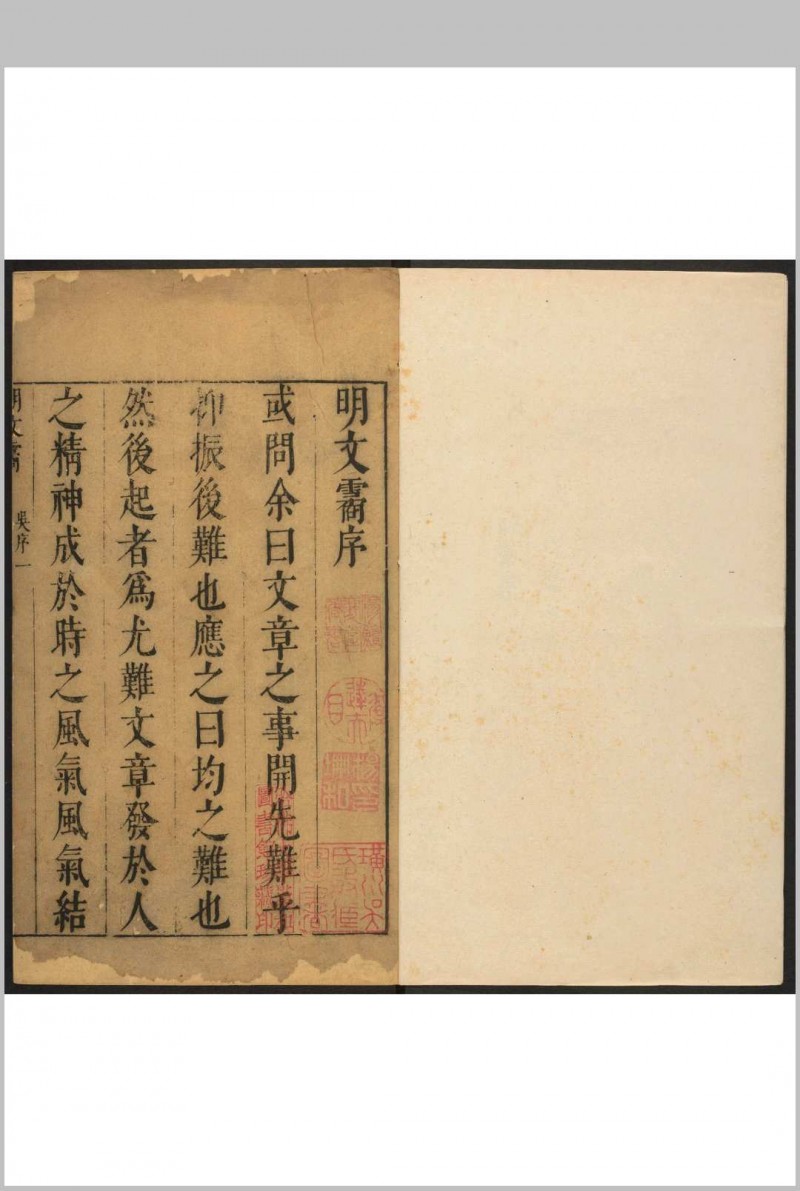 明文霱序
或問余曰文章之事開先難乎
抑振後難也應之曰均之難也
然後起者爲尤難文章發於人
之精神成於時之風氣風氣結
明文霱
吳序一